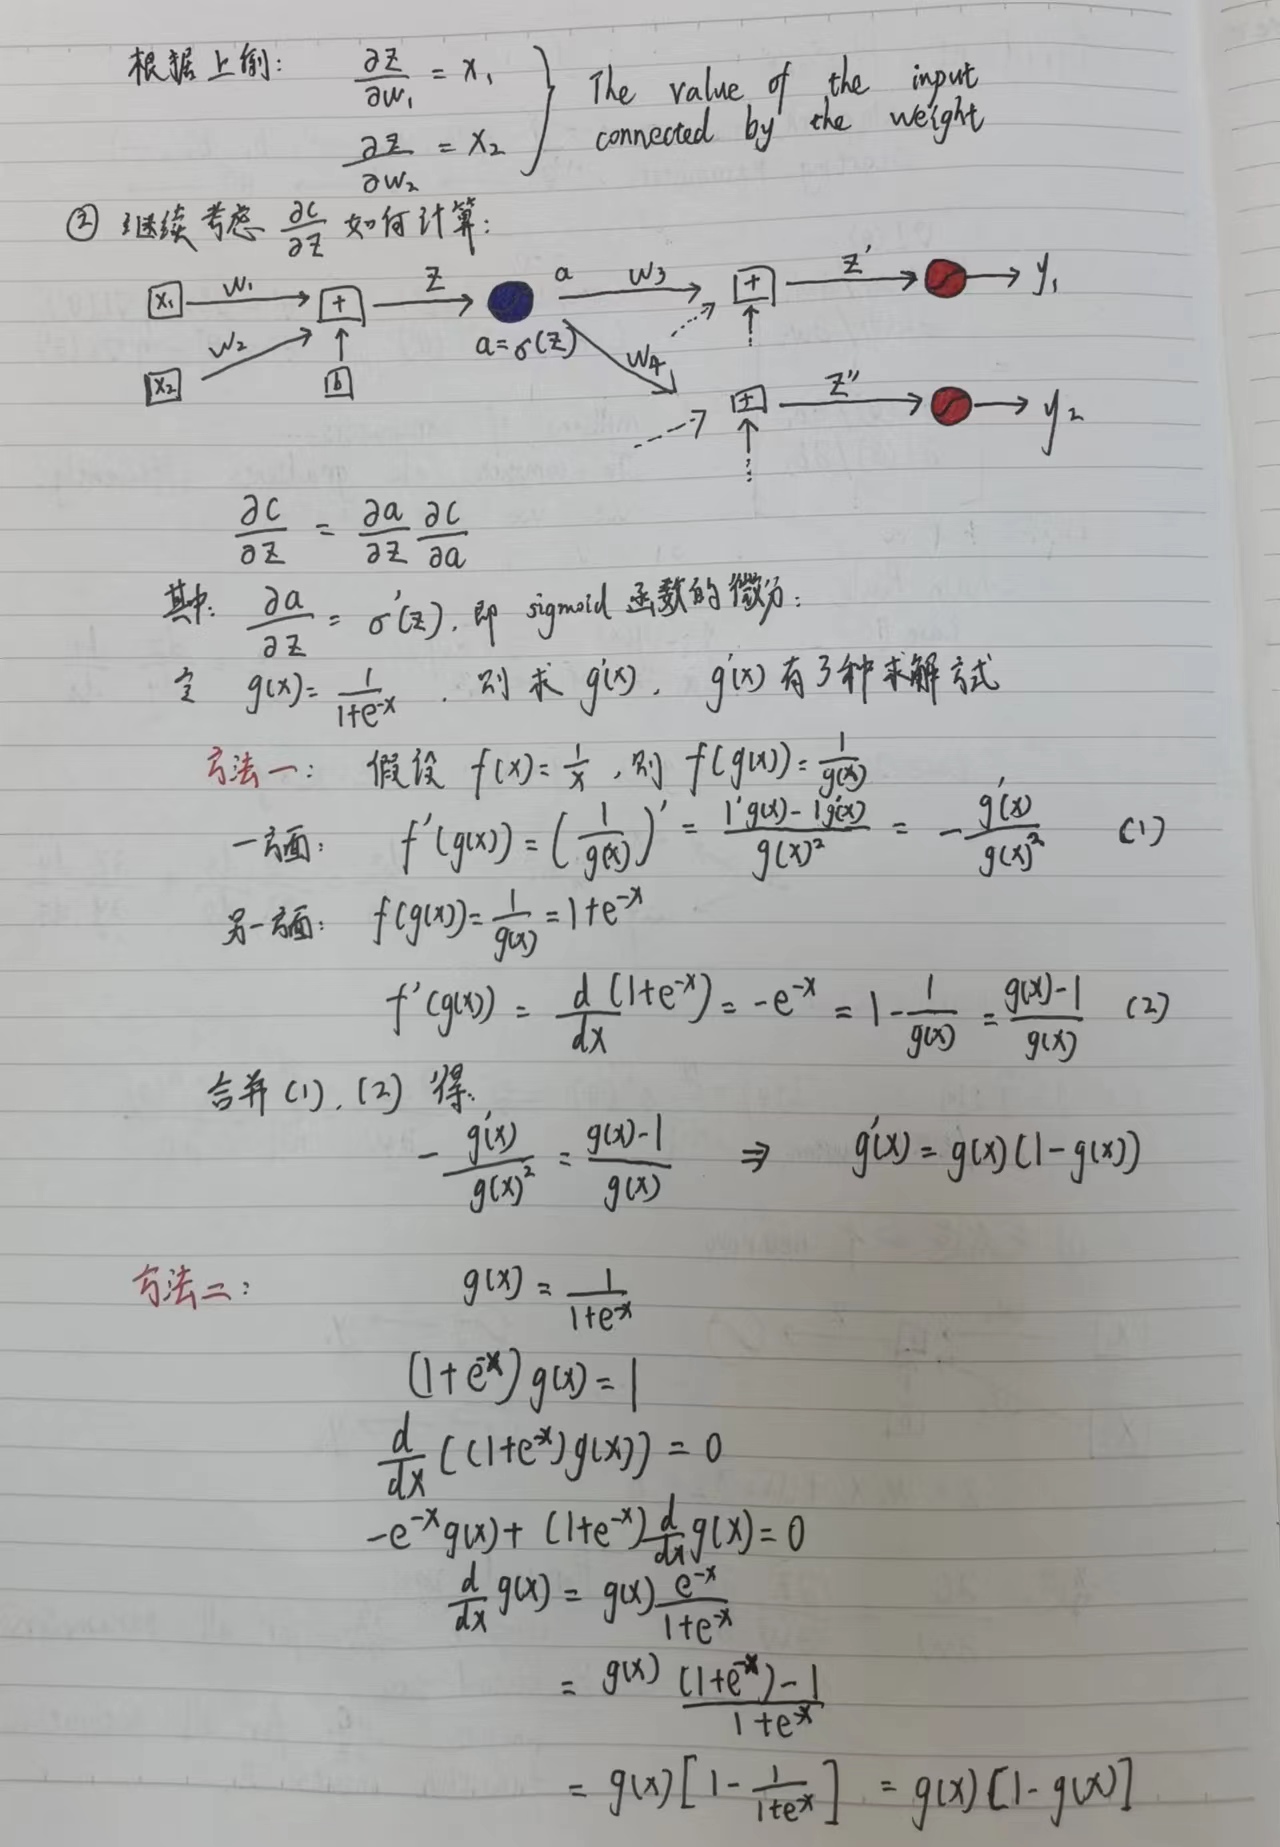 根据上例: ∂z/∂w₁ = x₁ } The value of the input
∂z/∂w₂ = x₂ connected by the weight
② 继续考虑 ∂C/∂z 如何计算:
x₁ w₁ + z a w₃ + z' y₁
w₂ a=σ(z) w₄
x₂ b + z'' y₂
∂C/∂z = ∂a/∂z ∂C/∂a
其中: ∂a/∂z = σ'(z), 即 sigmoid 函数的微分:
令 g(x)= 1/(1+e^-x) , 则求 g'(x), g'(x) 有3种求解方式
方法一: 假设 f(x)= 1/x , 则 f(g(x))= 1/g(x)
一方面: f'(g(x)) = (1/g(x))' = (1'g(x) - 1g'(x))/g(x)² = - g'(x)/g(x)² (1)
另一方面: f(g(x))= 1/g(x) = 1+e^-x
f'(g(x)) = d/dx (1+e^-x) = -e^-x = 1 - 1/g(x) = (g(x)-1)/g(x) (2)
合并(1), (2) 得:
- g'(x)/g(x)² = (g(x)-1)/g(x) ⇒ g'(x) = g(x)(1-g(x))
方法二: g(x) = 1/(1+e^-x)
(1+e^-x) g(x) = 1
d/dx ((1+e^-x)g(x)) = 0
-e^-x g(x) + (1+e^-x) d/dx g(x) = 0
d/dx g(x) = g(x) e^-x/(1+e^-x)
= g(x) ((1+e^-x)-1)/(1+e^-x)
= g(x)[1 - 1/(1+e^-x)] = g(x)[1-g(x)]